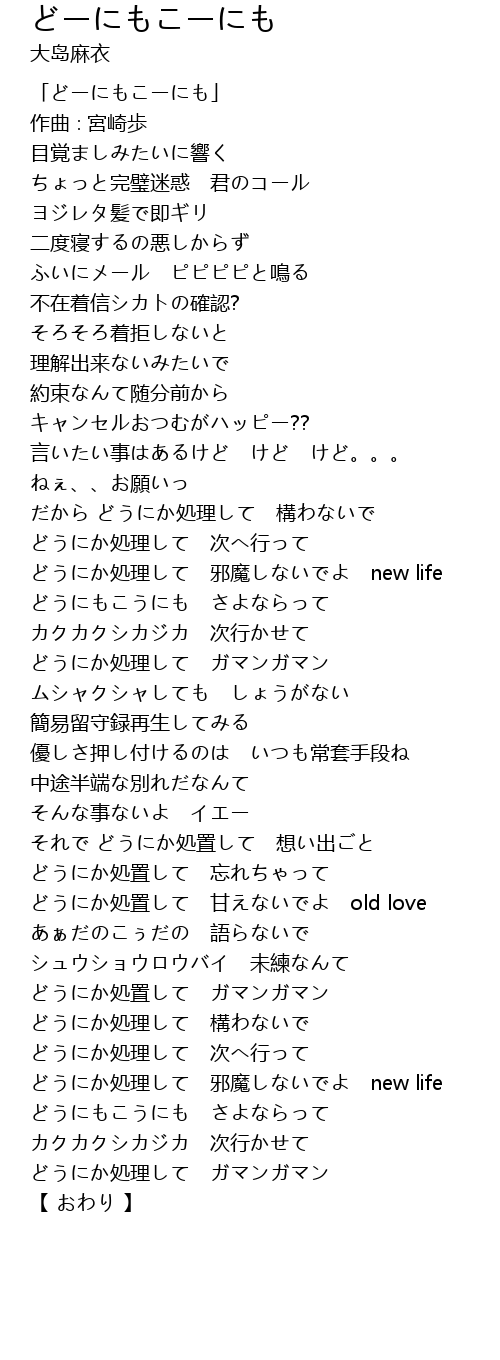 どーにもこーにも
大岛麻衣
「どーにもこーにも」
作曲 : 宮崎歩
目覚ましみたいに響く
ちょっと完璧迷惑　君のコール
ヨジレタ髪で即ギリ
二度寝するの悪しからず
ふいにメール　ピピピピと鳴る
不在着信シカトの確認?
そろそろ着拒しないと
理解出来ないみたいで
約束なんて随分前から
キャンセルおつむがハッピー??
言いたい事はあるけど　けど　けど。。。
ねぇ、、お願いっ
だから どうにか処理して　構わないで
どうにか処理して　次へ行って
どうにか処理して　邪魔しないでよ　new life
どうにもこうにも　さよならって
カクカクシカジカ　次行かせて
どうにか処理して　ガマンガマン
ムシャクシャしても　しょうがない
簡易留守録再生してみる
優しさ押し付けるのは　いつも常套手段ね
中途半端な別れだなんて
そんな事ないよ　イエー
それで どうにか処置して　想い出ごと
どうにか処置して　忘れちゃって
どうにか処置して　甘えないでよ　old love
あぁだのこぅだの　語らないで
シュウショウロウバイ　未練なんて
どうにか処置して　ガマンガマン
どうにか処理して　構わないで
どうにか処理して　次へ行って
どうにか処理して　邪魔しないでよ　new life
どうにもこうにも　さよならって
カクカクシカジカ　次行かせて
どうにか処理して　ガマンガマン
【 おわり 】